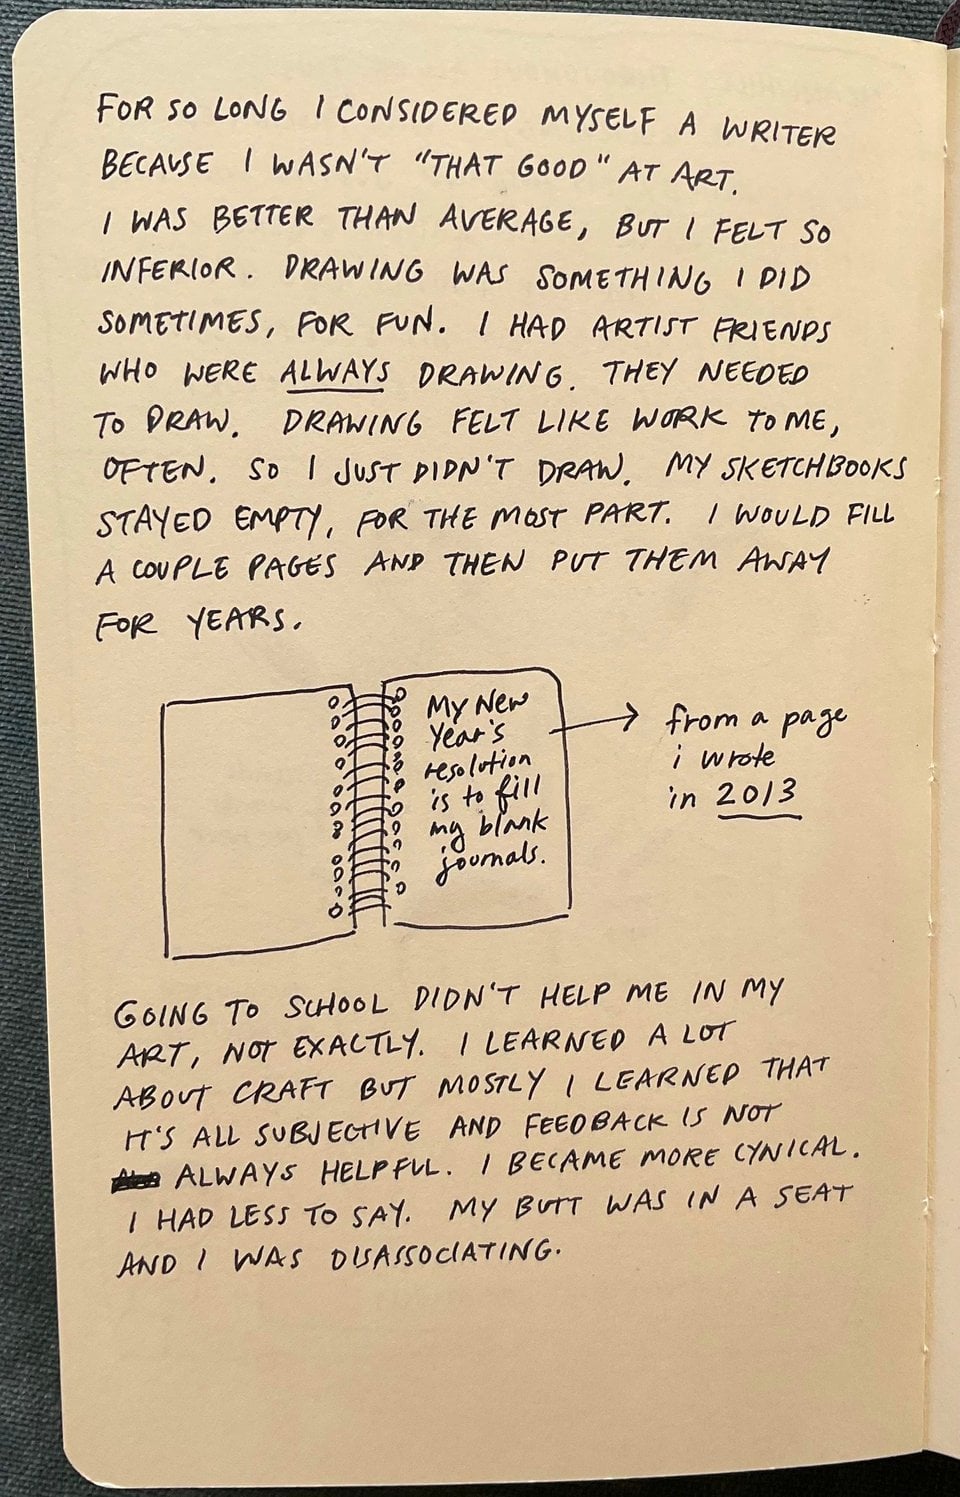 FOR SO LONG I CONSIDERED MYSELF A WRITER
BECAUSE I WASN'T "THAT GOOD" AT ART.
I WAS BETTER THAN AVERAGE, BUT I FELT SO
INFERIOR. DRAWING WAS SOMETHING I DID
SOMETIMES, FOR FUN. I HAD ARTIST FRIENDS
WHO WERE ALWAYS DRAWING. THEY NEEDED
TO DRAW. DRAWING FELT LIKE WORK TO ME,
OFTEN. SO I JUST DIDN'T DRAW. MY SKETCHBOOKS
STAYED EMPTY, FOR THE MOST PART. I WOULD FILL
A COUPLE PAGES AND THEN PUT THEM AWAY
FOR YEARS.
My New
Year's
resolution
is to fill
my blank
journals.
from a page
i wrote
in 2013
GOING TO SCHOOL DIDN'T HELP ME IN MY
ART, NOT EXACTLY. I LEARNED A LOT
ABOUT CRAFT BUT MOSTLY I LEARNED THAT
IT'S ALL SUBJECTIVE AND FEEDBACK IS NOT
ALWAYS HELPFUL. I BECAME MORE CYNICAL.
I HAD LESS TO SAY. MY BUTT WAS IN A SEAT
AND I WAS DISASSOCIATING.